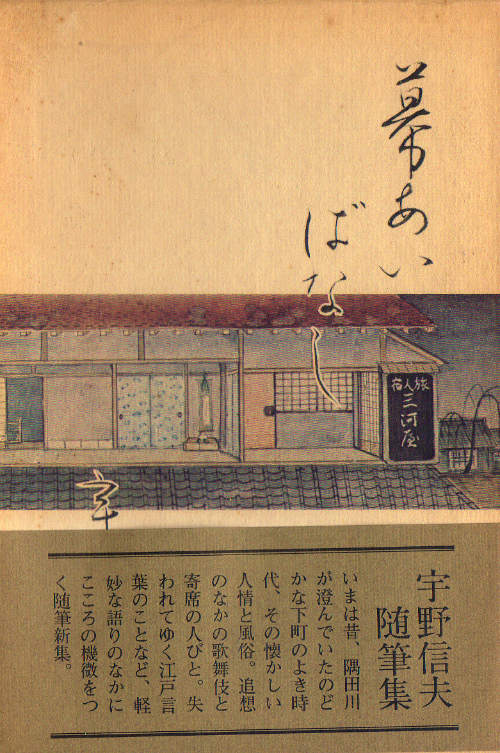 幕あい
ばなし
旅人宿
三河屋
宇野信夫
随筆集
いまは昔、隅田川
が澄んでいたのど
かな下町のよき時
代、その懐かしい
人情と風俗。追想
のなかの歌舞伎と
寄席の人びと。失
われてゆく江戸言
葉のことなど、軽
妙な語りのなかに
こころの機微をつ
く随筆新集。